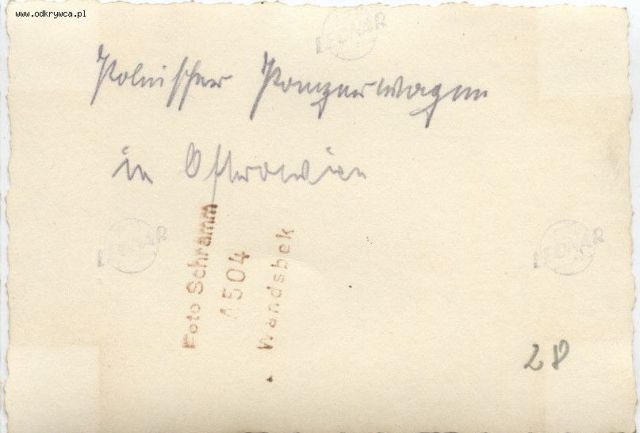 www.odkrywca.pl
LEONAR
Polnischer Panzerwagen
in Ostrowiec
LEONAR
LEONAR
Foto Schramm
A504
Wandsbek
28